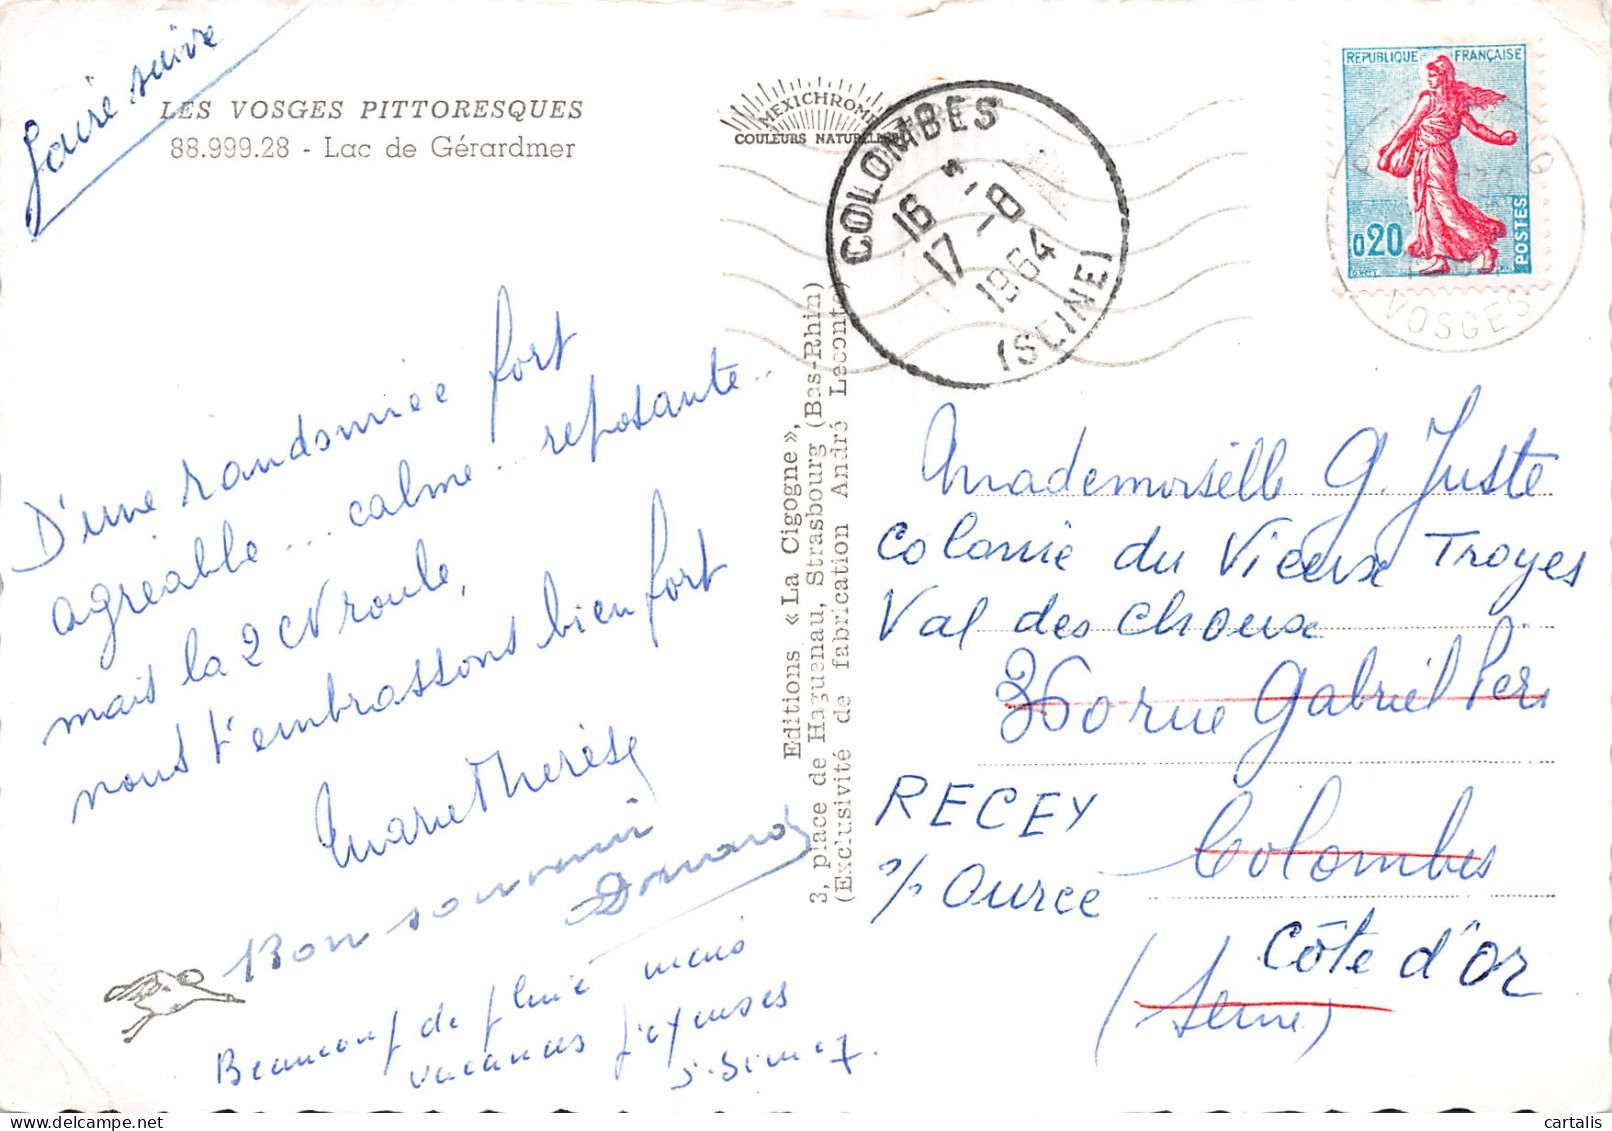 Faire suivre
LES VOSGES PITTORESQUES
88.999.28 - Lac de Gérardmer
MEXICHROME
COULEURS NATURELLES
COLOMBES
16
17 -8
1964
(SEINE)
REPUBLIQUE FRANÇAISE
0,20
POSTES
VOSGES
D'une randonnée fort
agréable... calme... reposante..
mais la 2 CV roule,
nous t'embrassons bien fort
Marie Thérèse
Bon souvenir
Beaucoup de pluie mais
vacances joyeuses
Editions « La Cigogne »,
3, place de Haguenau, Strasbourg (Bas-Rhin)
(Exclusivité de fabrication André Leconte)
Mademoiselle G. Juste
Colonie du Vieux Troyes
Val des Choux
360 rue Gabriel Péri
RECEY
s/s Ource
Colombes
Côte d'Or
(Seine)
cartalis